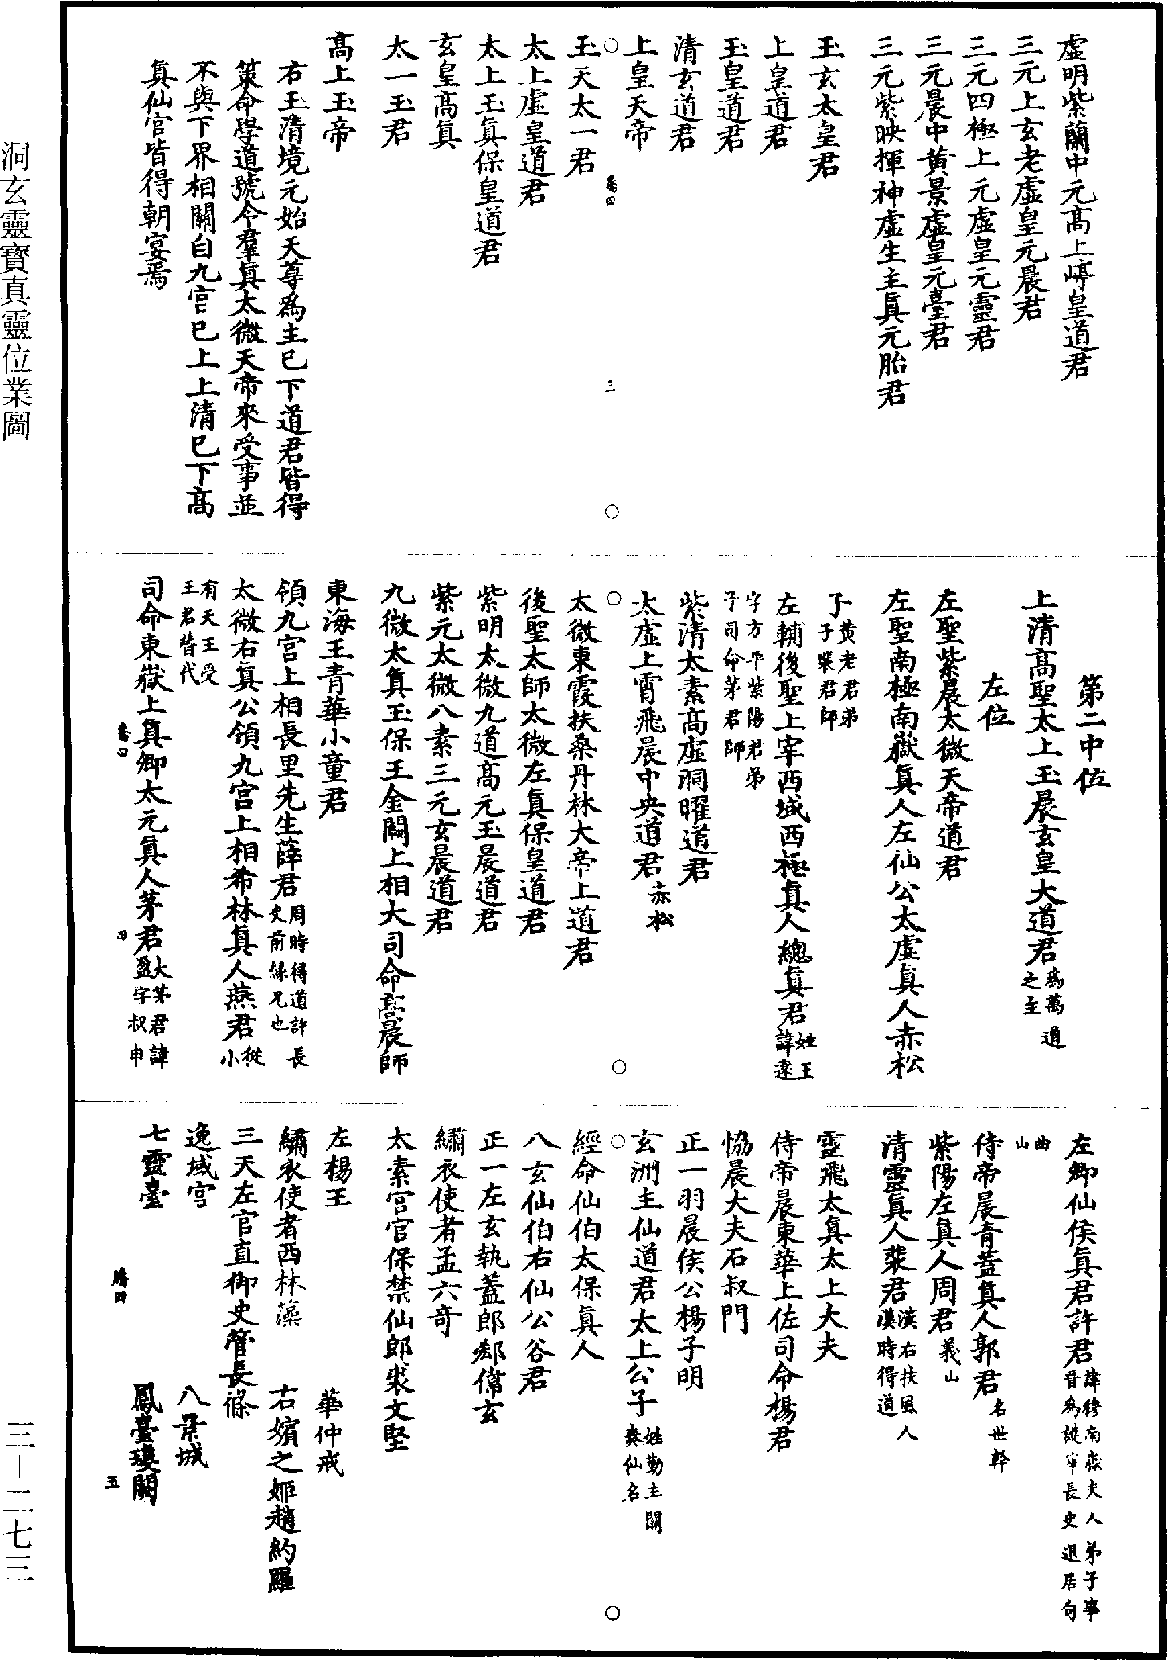 洞玄靈寶真靈位業圖
三—二七三
虛明紫蘭中元高上崿皇道君
三元上玄老虛皇元晨君
三元四極上元虛皇元靈君
三元晨中黃景虛皇元臺君
三元紫映揮神虛生主真元胎君
玉玄太皇君
上皇道君
玉皇道君
清玄道君
上皇天帝
玉天太一君
太上虛皇道君
太上玉真保皇道君
玄皇高真
太一玉君
高上玉帝
右玉清境元始天尊為主已下道君皆得
策命學道號令羣真太微天帝來受事並
不與下界相關自九宮已上上清已下高
真仙官皆得朝宴焉
三
第二中位
上清高聖太上玉晨玄皇大道君為萬道之主
左位
左聖紫晨太微天帝道君
左聖南極南嶽真人左仙公太虛真人赤松
子黃老君弟子裴君師
左輔後聖上宰西城西極真人總真君姓王諱遠
字方平紫陽君弟子司命茅君師
紫清太素高虛洞曜道君
太虛上霄飛晨中央道君赤松
太微東霞扶桑丹林大帝上道君
後聖太師太微左真保皇道君
紫明太微九道高元玉晨道君
紫元太微八素三元玄晨道君
九微太真玉保王金闕上相大司命高晨師
東海王青華小童君
領九宮上相長里先生薛君周時得道許長史前緣兄也
太微右真公領九宮上相希林真人燕君從小
有天王受王君替代
司命東嶽上真卿太元真人茅君大茅君諱盈字叔申
四
左卿仙侯真君許君諱穆南嶽夫人弟子事晉為護軍長史退居句
曲山
侍帝晨青蓋真人郭君名世幹
紫陽左真人周君義山
清靈真人裴君漢右扶風人漢時得道
靈飛太真太上大夫
侍帝晨東華上佐司命楊君
恊晨大夫石叔門
正一羽晨侯公楊子明
玄洲主仙道君太上公子姓勤主關奏仙名
經命仙伯太保真人
八玄仙伯右仙公谷君
正一左玄執蓋郎郄偉玄
繡衣使者孟六奇
太素宮官保禁仙郎裴文堅
左楊王 華仲戒
繡衣使者西林藻 右嬪之姬趙約羅
三天左官直御史管長條
逸域宮 八景城
七靈臺 鳳臺瓊闕
五